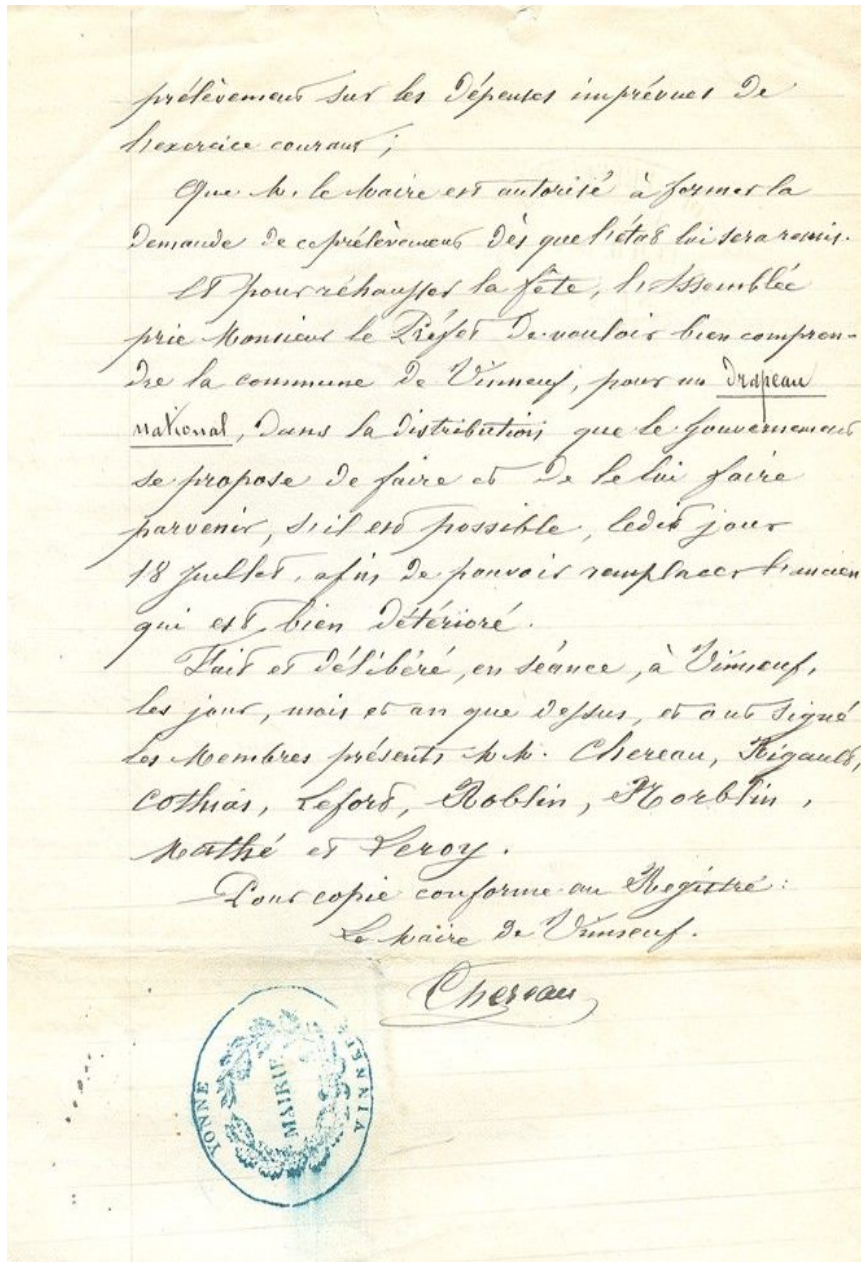 prélèvement sur les dépenses imprévues de
l'exercice courant ;
Que M. le Maire est autorisé à former la
demande de ce prélèvement dès que l'état lui sera remis.
Et pour réhausser la fête, l'Assemblée
prie Monsieur le Préfet de vouloir bien compren-
dre la commune de Vinneuf, pour un drapeau
national, dans la distribution que le Gouvernement
se propose de faire et de le lui faire
parvenir, s'il est possible, ledit jour
18 Juillet, afin de pouvoir remplacer l'ancien
qui est bien détérioré.
Fait et délibéré, en séance, à Vinneuf,
les jour, mois et an que dessus, et ont signé
les Membres présents M.M. Chereau, Rigault,
Cothias, Lefort, Roblin, Morblin,
Mathé et Leroy.
Pour copie conforme au Registre :
Le Maire de Vinneuf.
Chereau
VINNEUF
MAIRIE
YONNE